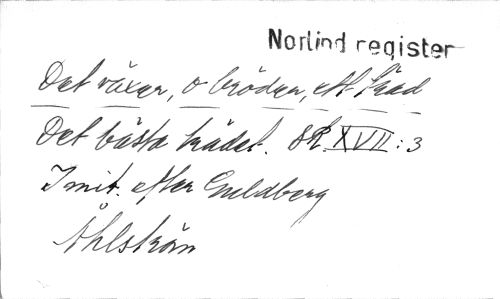 Norlind register
Det växer, o bröder, ett träd
Det bästa trädet. SR. XVII:3
Imit. efter Guldberg
Åhlström